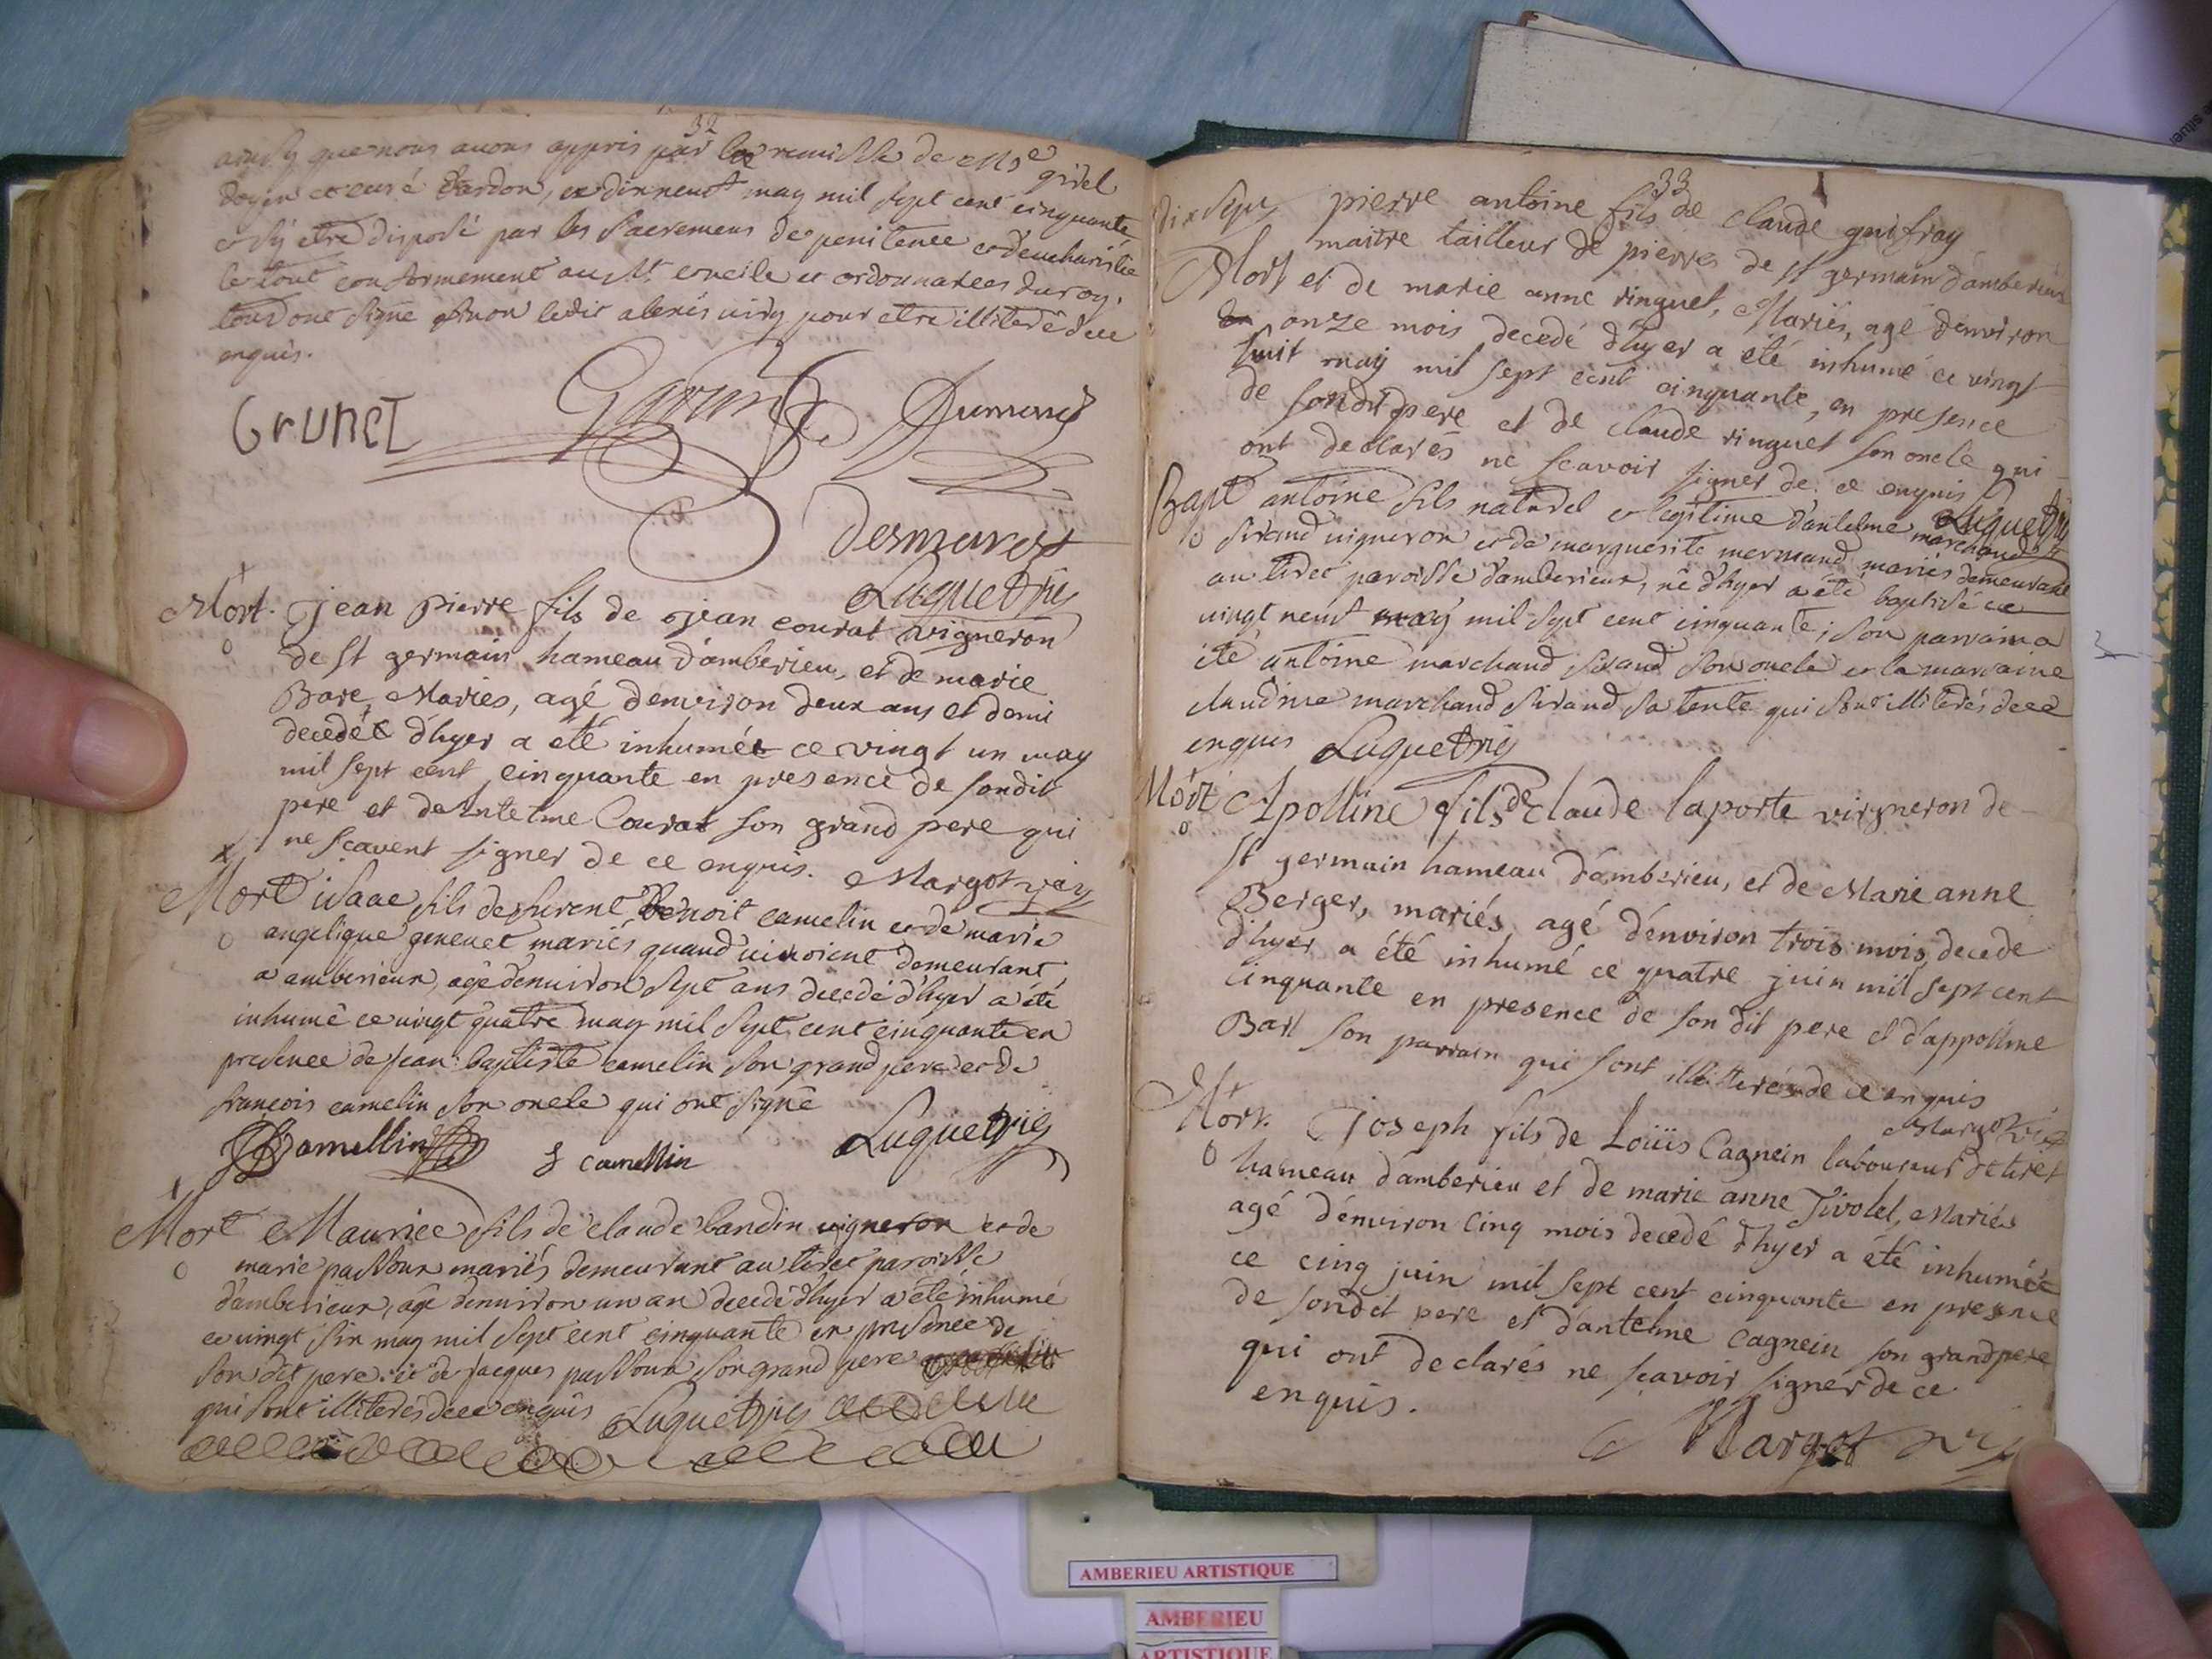 32
ainsy que nous auons appris par la remisse de Mre girel
doyen et curé dardon, ce dixneuf may mil sept cent cinquante
et sy etre disposé par les Sacremens de penitence et d'eucharistie
le tout conformement au St concile et ordonnances du roy,
tous ont signé sinon ledit alexis uiry pour etre illiteré de ce
enquis.
Grunet
Dumarest
Desmarest
Luquet vic
Mort. jean pierre fils de jean courat vigneron
de st germain hameau d'amberieu, et de marie
Bare, Mariés, agé denviron deux ans et demi
decedé d'hyer a eté inhumé ce vingt un may
mil sept cent cinquante en presence de sondit
pere et de Antelme Courat son grand pere qui
ne scavent signer de ce enquis. Margot vic
Mort isaac fils de furent Benoit camelin et de marie
angelique genevet mariés quand uiuoient demeurant
a amberieux, agé denuiron sept ans decedé d'hyer a été
inhumé ce uingt quatre may mil sept cent cinquante en
presence de jean baptiste camelin son grand pere et de
françois camelin son oncle qui ont signé
JB Camellin f camellin Luquet vic
Mort Maurice fils de claude bandin uigneron et de
marie passoux mariés demeurant au tiret paroisse
d'amberieux, agé denuiron un an decedé d'hyer a été inhumé
ce uingt six may mil sept cent cinquante en presence de
son dit pere et de jacques passoux son grand pere
qui sont illiterés de ce enquis Luquet vic
33
dix sept pierre antoine fils de claude guifray
maitre tailleur de pierres de st germain d'amberieux
Mort et de marie anne ringuet, Mariés, agé denviron
onze mois decedé d'hyer a été inhumé ce vingt
huit may mil sept cent cinquante, en presence
de sondit pere et de claude ringuet son oncle qui
ont declarés ne scavoir signer de ce enquis
Luquet vic
Bapt antoine fils naturel et legitime d'antelme marchand
sirand uigneron et de marguerite mermand mariés demeurant
au tiret paroisse d'amberieux, né d'hyer a été baptisé ce
vingt neuf may mil sept cent cinquante; son parrain a
été antoine marchand sirand son oncle et la marraine
claudine marchand sirand sa tente qui sont illiterés de ce
enquis Luquet vic
Mort Apolline fils de Claude laporte virgneron de
st germain hameau d'amberieu, et de Marie anne
Berger, mariés, agé d'environ trois mois, decede
d'hyer a été inhumé ce quatre juin mil sept cent
cinquante en presence de son dit pere et d'appolline
Barl son parrain qui sont illitterés de ce enquis
Margot vic
Mort. Joseph fils de Loüis Cagnein laboureur de tiret
hameau d'amberieu et de marie anne Tivolet, Mariés
agé d'environ cinq mois decedé d'hyer a été inhumé
ce cinq juin mil sept cent cinquante en presence
de sondit pere et d'antelme cagnein son grand pere
qui ont declarés ne scavoir signer de ce
enquis.
Margot vic
AMBERIEU ARTISTIQUE
AMBERIEU
ARTISTIQUE